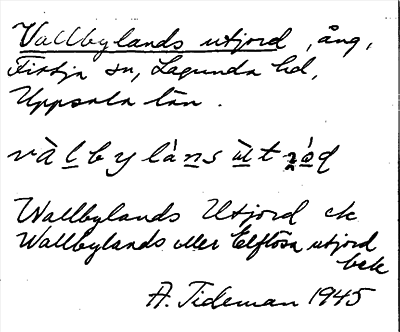 Vallbylands utjord, äng,
Fittja sn, Lagunda hd,
Uppsala län.
vàlbylánsùtṇ́o̱d
Wallbylands Utjord ek
Wallbylands eller Elflösa utjord
bek
A. Tideman 1945